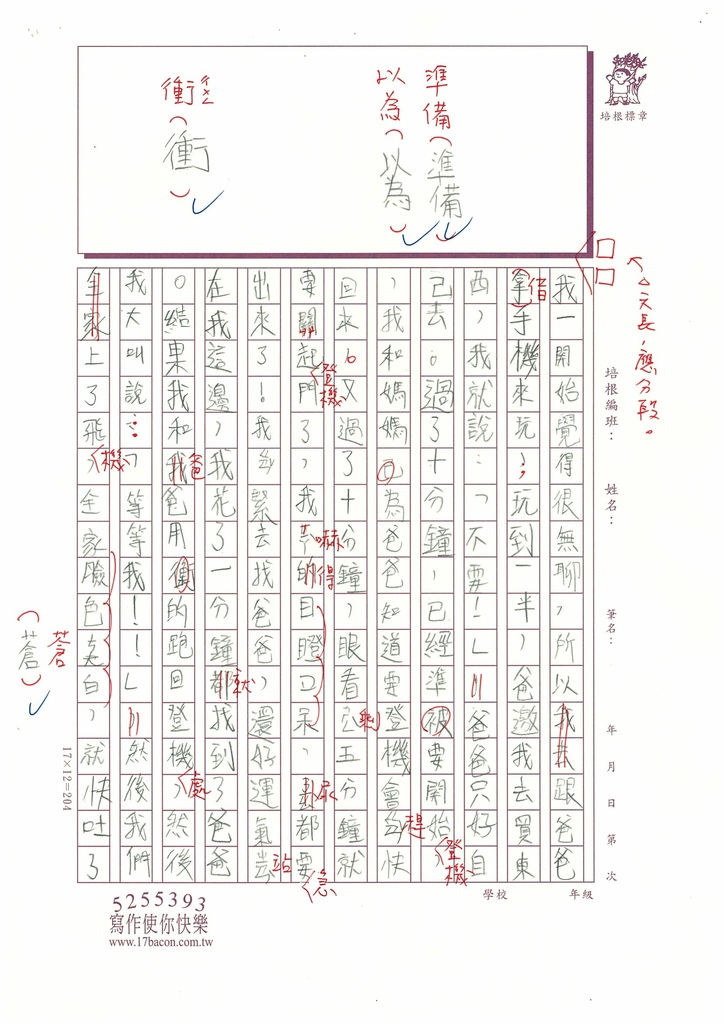 我一開始覺得很無聊，所以我共跟爸爸
拿手機來玩，玩到一半，爸邀我去買東
西，我就說：「不要！」爸爸只好自
己去。過了十分鐘，已經準被要開始
，我和媽媽因為爸爸，知道要登機會趕快
回來。又過了十分鐘，眼看公五分鐘就
要關起門了，我的目瞪口呆，都要
出來了！我緊去找爸爸，還好運氣
在我這邊，我花了一分鐘都找到了爸爸
。結果我和我爸用衝的跑回登機，然後
我大叫說：「等等我！！」然後我們
全家上了飛，全家臉色白，就快吐了
準備（準備）
以為（以為）
衝ㄔㄨㄥ（衝）
借
爸
登機
登機
趕
剩
嚇
得
尿
急
站
就
爸
處
機
蒼（蒼）
文長，應分段。
培根標章
培根編班：
姓名：
筆名：
年 月 日 第 次
學校 年級
17×12=204
5255393
寫作使你快樂
www.17bacon.com.tw